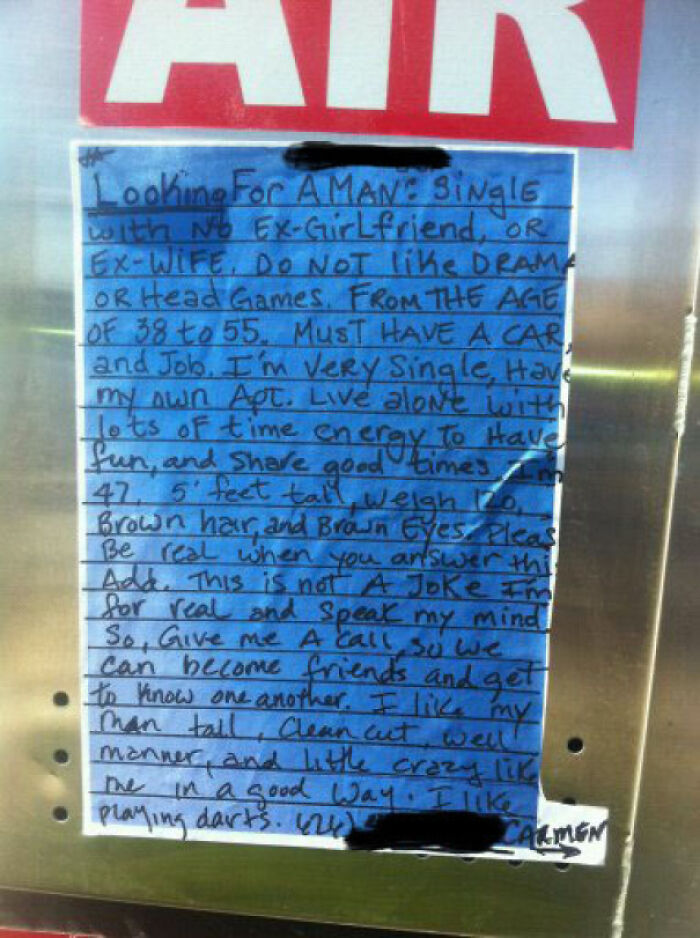 AIR
Looking FOR A MAN: SiNglE
with No Ex-GirLfriend, OR
EX-WIFE. DO NOT like DRAMA
OR Head Games. FROM THE AGE
OF 38 to 55. MusT HAVE A CAR,
and Job. I'm VeRy Single, Have
my own Apt. Live alone with
lots of time energy To Have
fun, and Share good times I'm
47, 5' feet tall, weigh 120,
Brown hair, and Brown Eyes. Pleas
Be real when you answer thi
Add. This is not A JoKe I'm
for real and Speak my mind
So, Give me A call, so we
can become friends and get
to Know one another. I like my
man tall, Clean cut, well
manner, and little crazy like
me in a good way. I like
playing darts. 424)
CARMEN